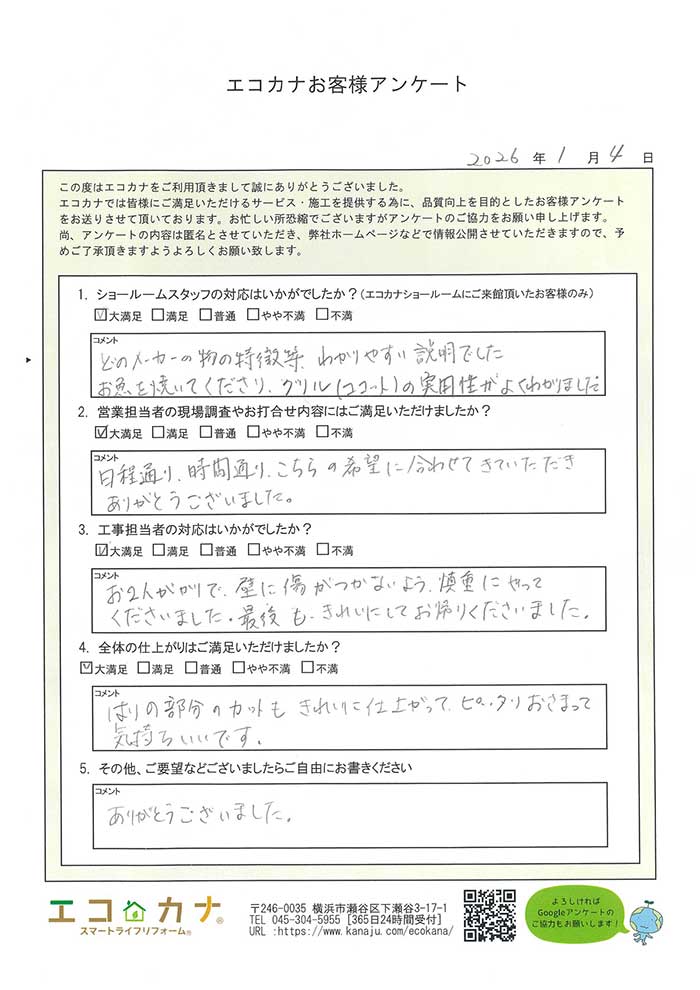 エコカナお客様アンケート
2026 年 1 月 4 日
この度はエコカナをご利用頂きまして誠にありがとうございました。
エコカナでは皆様にご満足いただけるサービス・施工を提供する為に、品質向上を目的としたお客様アンケート
をお送りさせて頂いております。お忙しい所恐縮でございますがアンケートのご協力をお願い申し上げます。
尚、アンケートの内容は匿名とさせていただき、弊社ホームページなどで情報公開させていただきますので、予
めご了承頂きますようよろしくお願い致します。
1. ショールームスタッフの対応はいかがでしたか？(エコカナショールームにご来館頂いたお客様のみ)
☑大満足 □満足 □普通 □やや不満 □不満
コメント
どのメーカーの物の特徴等、わかりやすい説明でした
お魚を焼いてくださり、グリル(ココット)の実用性がよくわかりました
2. 営業担当者の現場調査やお打合せ内容にはご満足いただけましたか？
☑大満足 □満足 □普通 □やや不満 □不満
コメント
日程通り、時間通り、こちらの希望に合わせてきていただき
ありがとうございました。
3. 工事担当者の対応はいかがでしたか？
☑大満足 □満足 □普通 □やや不満 □不満
コメント
お2人がかりで、壁に傷がつかないよう、慎重にやって
くださいました。最後も、きれいにしてお帰りくださいました。
4. 全体の仕上がりはご満足いただけましたか？
☑大満足 □満足 □普通 □やや不満 □不満
コメント
はりの部分のカットもきれいに仕上がって、ピッタリおさまって
気持ちいいです。
5. その他、ご要望などございましたらご自由にお書きください
コメント
ありがとうございました。
エコカナ®
スマートライフリフォーム®
〒246-0035 横浜市瀬谷区下瀬谷3-17-1
TEL 045-304-5955 [365日24時間受付]
URL :https://www.kanaju.com/ecokana/
よろしければ
Googleアンケートの
ご協力もお願いします！